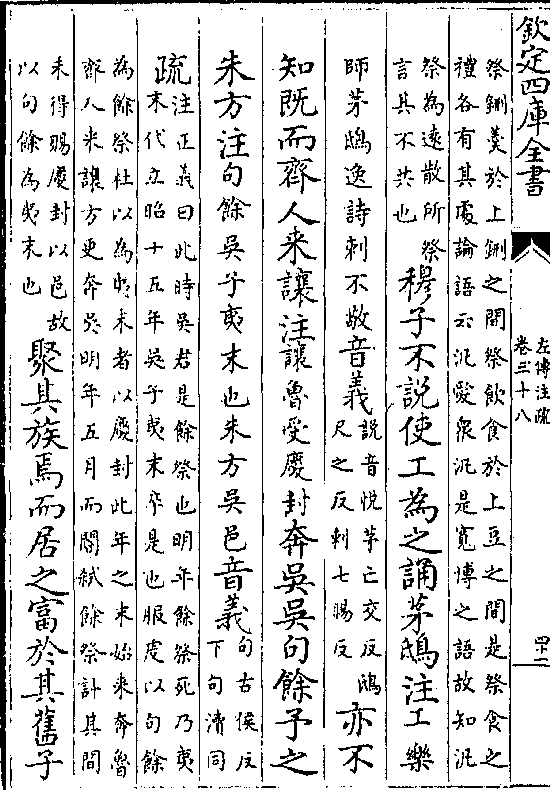 欽定四庫全書
左傳注疏
卷三十八
四十二
祭鉶羮於上鉶之間祭飲食於上豆之間是祭食之
禮各有其處論語云汎愛衆汎是寛博之語故知汎
祭為逺散所祭
言其不共也
穆子不説使工為之誦茅鴟注工樂
師茅鴟逸詩刺不敬音義
説音悦茅亡交反鴟
尺之反刺七賜反
亦不
知既而齊人来讓注讓魯受慶封奔吳吳句餘予之
朱方注句餘吳子夷末也朱方吳邑音義
句古侯反
下句瀆同
疏
注正義曰此時吳君是餘祭也明年餘祭死乃夷
末代立昭十五年吳子夷末卒是也服虔以句餘
為餘祭杜以為夷末者以慶封此年之末始来奔魯
齊人来讓方更奔吳明年五月而閽弑餘祭計其間
未得賜慶封以邑故
以句餘為夷末也
聚其族焉而居之富於其舊子